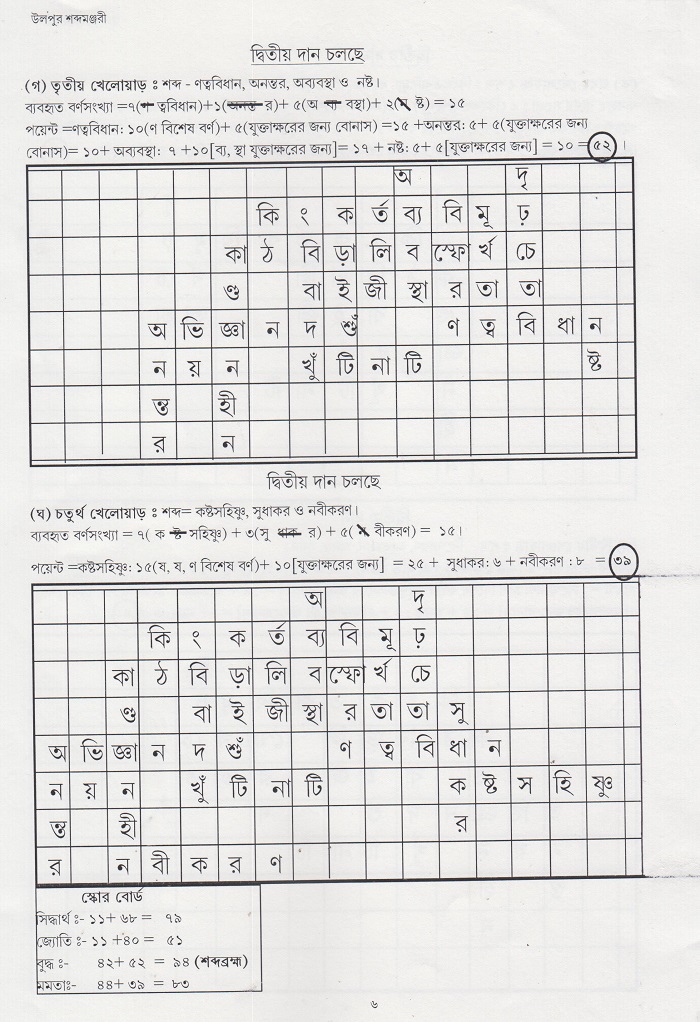 উলপুর শব্দমঞ্জরী
দ্বিতীয় দান চলছে
(গ) তৃতীয় খেলোয়াড় : শব্দ - ণত্ববিধান, অনন্তর, অব্যবস্থা ও নষ্ট।
ব্যবহৃত বর্ণসংখ্যা =৭(ণ ত্ববিধান)+১(অনন্ত র)+ ৫(অ ব্য বস্থা)+ ২(ন ষ্ট) = ১৫
পয়েন্ট =ণত্ববিধান: ১০(ণ বিশেষ বর্ণ)+ ৫(যুক্তাক্ষরের জন্য বোনাস) =১৫ +অনন্তর: ৫+ ৫(যুক্তাক্ষরের জন্য
বোনাস)= ১০+ অব্যবস্থা: ৭ +১০[ব্য, স্থা যুক্তাক্ষরের জন্য]= ১৭ + নষ্ট: ৫+ ৫[যুক্তাক্ষরের জন্য] = ১০ = ৫২ ।
অ দৃ
কি ং ক র্ত ব্য বি মূ ঢ়
কা ঠ বি ড়া লি ব স্ফো র্খ চে
ণ্ড বা ই জী স্থা র তা তা
অ ভি জ্ঞা ন দ শুঁ ণ ত্ব বি ধা ন
ন য় ন খুঁ টি না টি ষ্ট
ন্ত হী
র ন
দ্বিতীয় দান চলছে
(ঘ) চতুর্থ খেলোয়াড় : শব্দ= কষ্টসহিষ্ণু, সুধাকর ও নবীকরণ।
ব্যবহৃত বর্ণসংখ্যা = ৭( ক ষ্ট সহিষ্ণু) + ৩(সু ধাক র) + ৫( ন বীকরণ) = ১৫।
পয়েন্ট =কষ্টসহিষ্ণু: ১৫(ষ, ষ, ণ বিশেষ বর্ণ)+ ১০[যুক্তাক্ষরের জন্য] = ২৫ + সুধাকর: ৬ + নবীকরণ : ৮ = ৩৯
অ দৃ
কি ং ক র্ত ব্য বি মূ ঢ়
কা ঠ বি ড়া লি ব স্ফো র্খ চে
ণ্ড বা ই জী স্থা র তা তা সু
অ ভি জ্ঞা ন দ শুঁ ণ ত্ব বি ধা ন
ন য় ন খুঁ টি না টি ক ষ্ট স হি ষ্ণু
ন্ত হী র
র ন বী ক র ণ
স্কোর বোর্ড
সিদ্ধার্থ ঃ- ১১+ ৬৮ = ৭৯
জ্যোতি ঃ- ১১ +৪০ = ৫১
বুদ্ধ ঃ- ৪২+ ৫২ = ৯৪ (শব্দব্রহ্মা)
মমতাঃ- ৪৪+ ৩৯ = ৮৩
৬